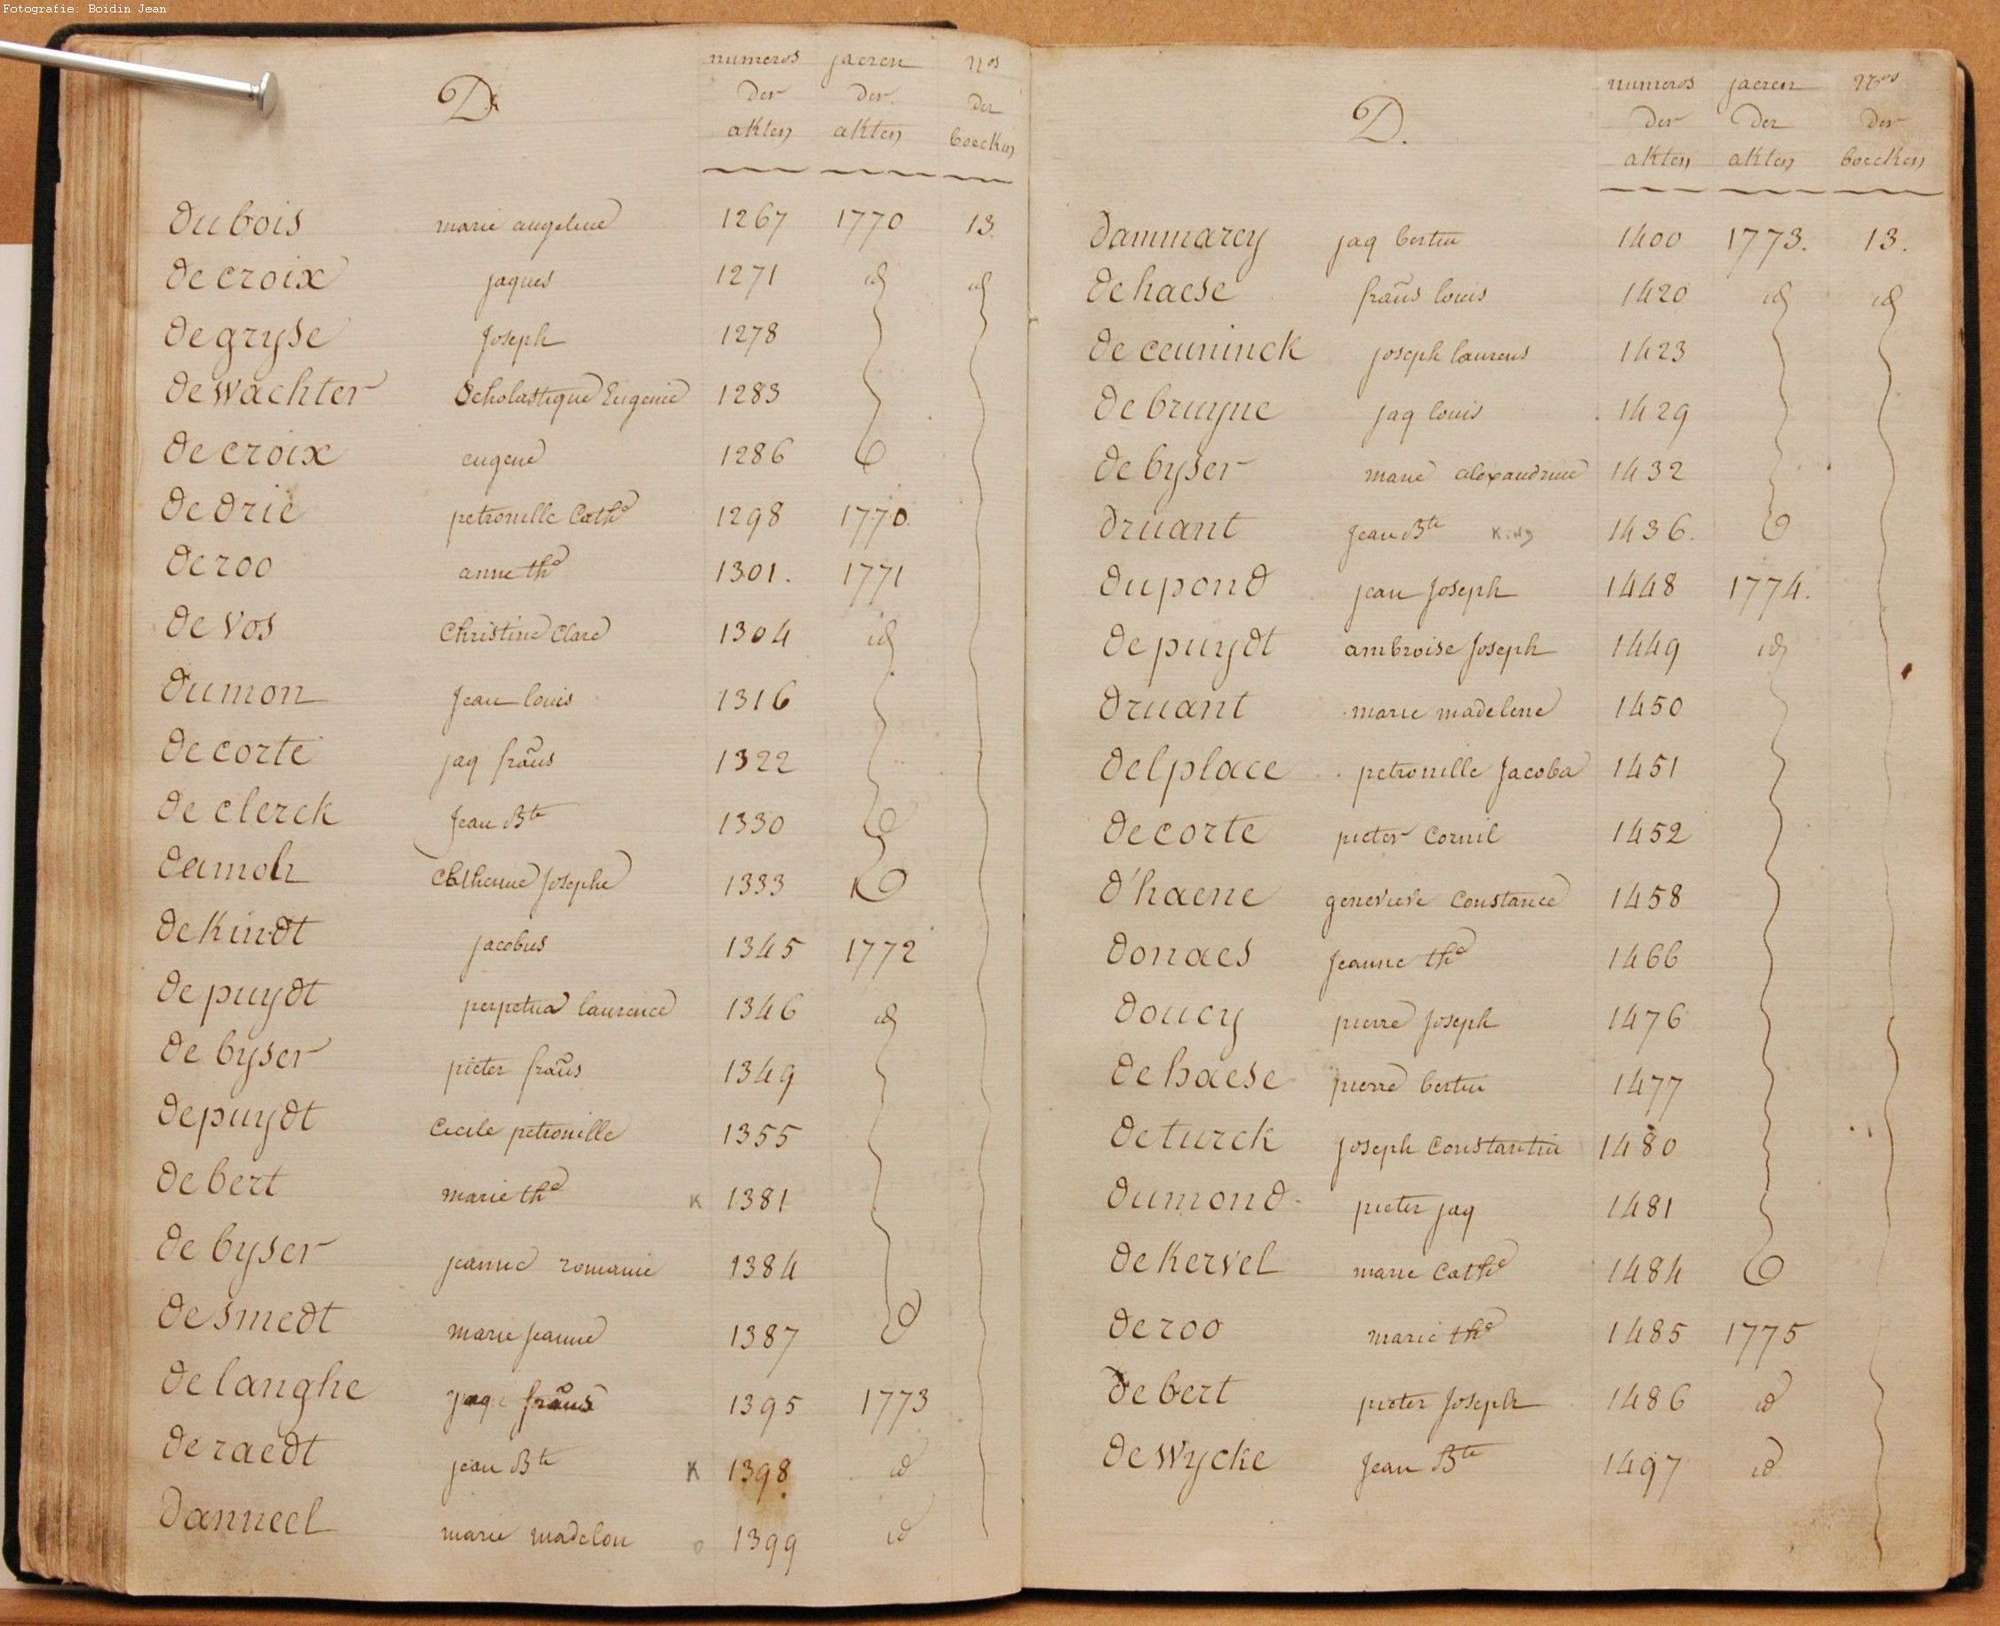 Fotografie: Boidin Jean
D.
numeros der akten
jaeren der akten
Nos der boecken
Dubois marie angeline 1267 1770 13.
De croix jaques 1271 id id
De gryse Joseph 1278
De wachter Scholastique Eugenie 1283
De croix eugene 1286
De Drie petronille Cathe 1298 1770
De roo anne the 1301. 1771
De Vos Christine Clare 1304 id
Dumon Jean louis 1316
De corte jaq frans 1322
De clerck Jean Bte 1330
Josephe 1333
De Kindt jacobus 1345 1772
De puydt perpetua laurence 1346 id
De byser pieter frans 1349
De puydt Cecile petronille 1355
De bert marie the K 1381
De byser jeanne romanie 1384
De smedt marie jeanne 1387
De langhe jaq frans 1395 1773
De raedt jean Bte K 1398 id
Danneel marie madelon 1399 id
D.
numeros der akten
jaeren der akten
Nros der boecken
Dammarcy jaq bertin 1400 1773. 13.
De haese frans louis 1420 id id
De ceuninck joseph laurens 1423
De bruyne jaq louis 1429
De byser marie alexandrine 1432
Druant Jean Bte 1436.
Dupond jean Joseph 1448 1774.
De puydt ambroise Joseph 1449 id
Druant marie madelene 1450
Delplace petronille Jacoba 1451
De corte pieter Cornil 1452
D'haene genevieve Constance 1458
Donaes Jeanne the 1466
Doucy pierre Joseph 1476
De haese pierre bertin 1477
De turck joseph Constantin 1480
Dumond pieter jaq 1481
De Kervel marie Cathe 1484
De roo marie the 1485 1775
De bert pieter Joseph 1486 id
De Wycke Jean Bte 1497 id